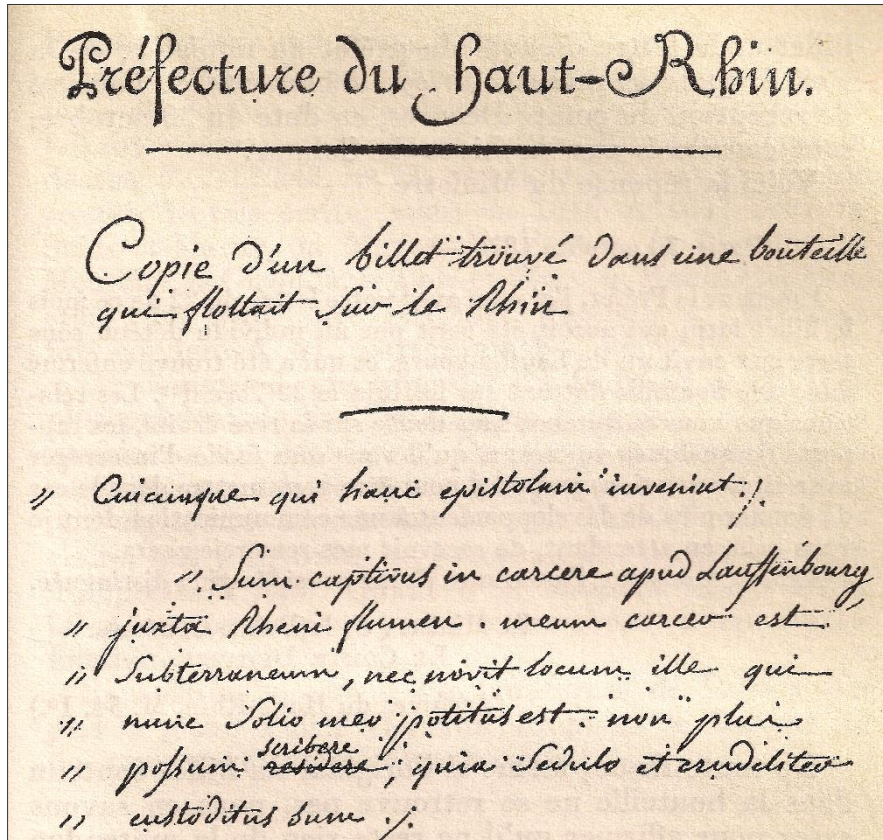 Préfecture du Haut-Rhin.
Copie d'un billet trouvé dans une bouteille
qui flottait sur le Rhin
" Cuicunque qui hanc epistolam inveniet ./.
" Sum captivus in carcere apud Lauffenbourg
" juxta Rheni flumen . meum carcer est
" Subterraneum, nec novit locum ille qui
" nunc Solio meo potitus est . non plus
" possum scribere residere, quia Sedulo et crudeliter
" custoditus sum ./.